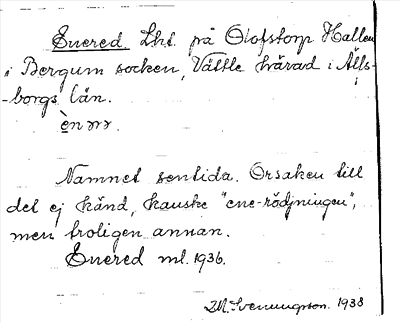 Enered. Lht. på Olofstorp Hallen
i Bergum socken, Vättle härad i Älfs-
-borgs län.
Namnet sentida. Orsaken till
det ej känd, kanske "ene-rödjningen",
men troligen annan.
Enered ml. 1936.
Svenungson. 1938